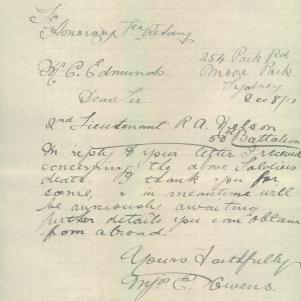 To
Honorary Secretary
254 Park Rd
Mr C. Edmunds.
Moore Park
Sydney
Dear Sir
Dec 8/17
2nd Lieutenant R. A. Nelson
Battalion
In reply to your letter I received
concerning the above Soldiers
death. I thank you for
same, & in meantime will
be anxiously awaiting
further details you can obtain
from abroad.
Yours Faithfully
Mrs E. Owens.